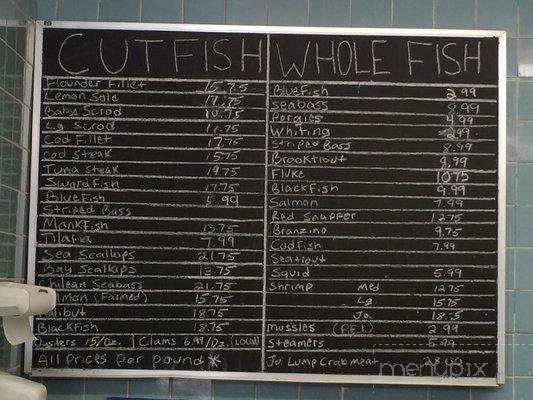 CUTFISH
Flounder Fillet 15.75
Lemon Sole 17.75
Baby Scrod 10.75
Lg Scrod 11.75
Cod Fillet 17.75
Cod Steak 15.75
Tuna Steak 19.75
SwordFish 17.75
BlueFish 5.99
Striped Bass
MankFish 13.75
Tilafia 7.99
Sea Scallops 21.75
Bay Scallops 13.75
Chilean Seabass 21.75
(Farmed) 15.75
18.75
BlackFish 18.75
15/Dz. Clams 6.99/Dz. (LOCAL)
All Prices Per Pound *
WHOLE FISH
BlueFish 2.99
Seabass 8.99
Porgies 4.99
Whiting 2.99
Striped Bass 8.99
Brooktrout 8.99
Fluke 10.75
BlackFish 9.99
Salmon 7.99
Red Snapper 12.75
Branzino 9.75
Codfish 7.99
Seatrout
Squid 5.99
Shrimp Med. 12.75
Lg 15.75
Jo.
Mussles (P.E.I.) 2.99
Steamers 5.99
Ju Lump Crab Meat
menupix